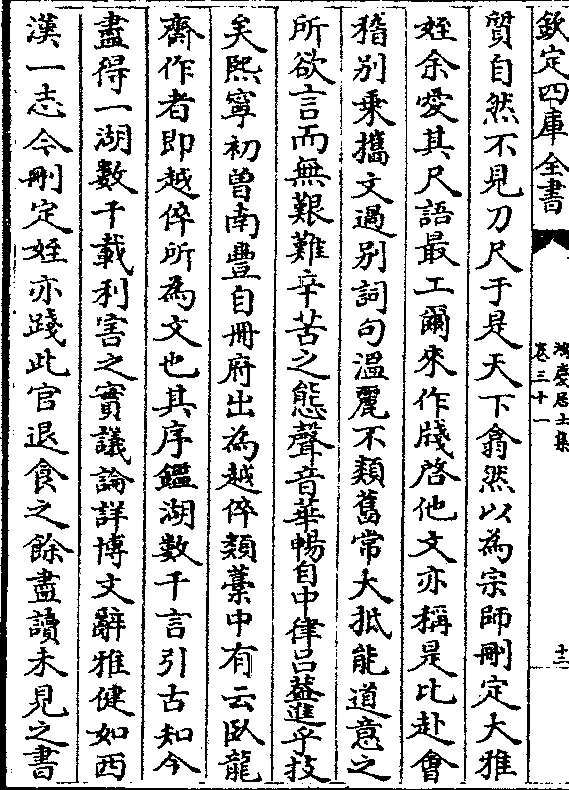 欽定四庫全書
鴻慶居士集
卷三十一
十三
質自然不見刀尺于是天下翕然以為宗師刪定大雅
姪余愛其尺語最工爾來作牋啓他文亦稱是比赴會
稽别乗攜文過别詞句溫麗不類舊常大抵能道意之
所欲言而無艱難辛苦之態聲音華暢自中律吕葢進乎技
矣熙寧初曾南豐自冊府出為越倅類藳中有云臥龍
齋作者即越倅所為文也其序鑑湖數千言引古知今
盡得一湖數千載利害之實議論詳博文辭雅健如西
漢一志今刪定姪亦踐此官退食之餘盡讀未見之書